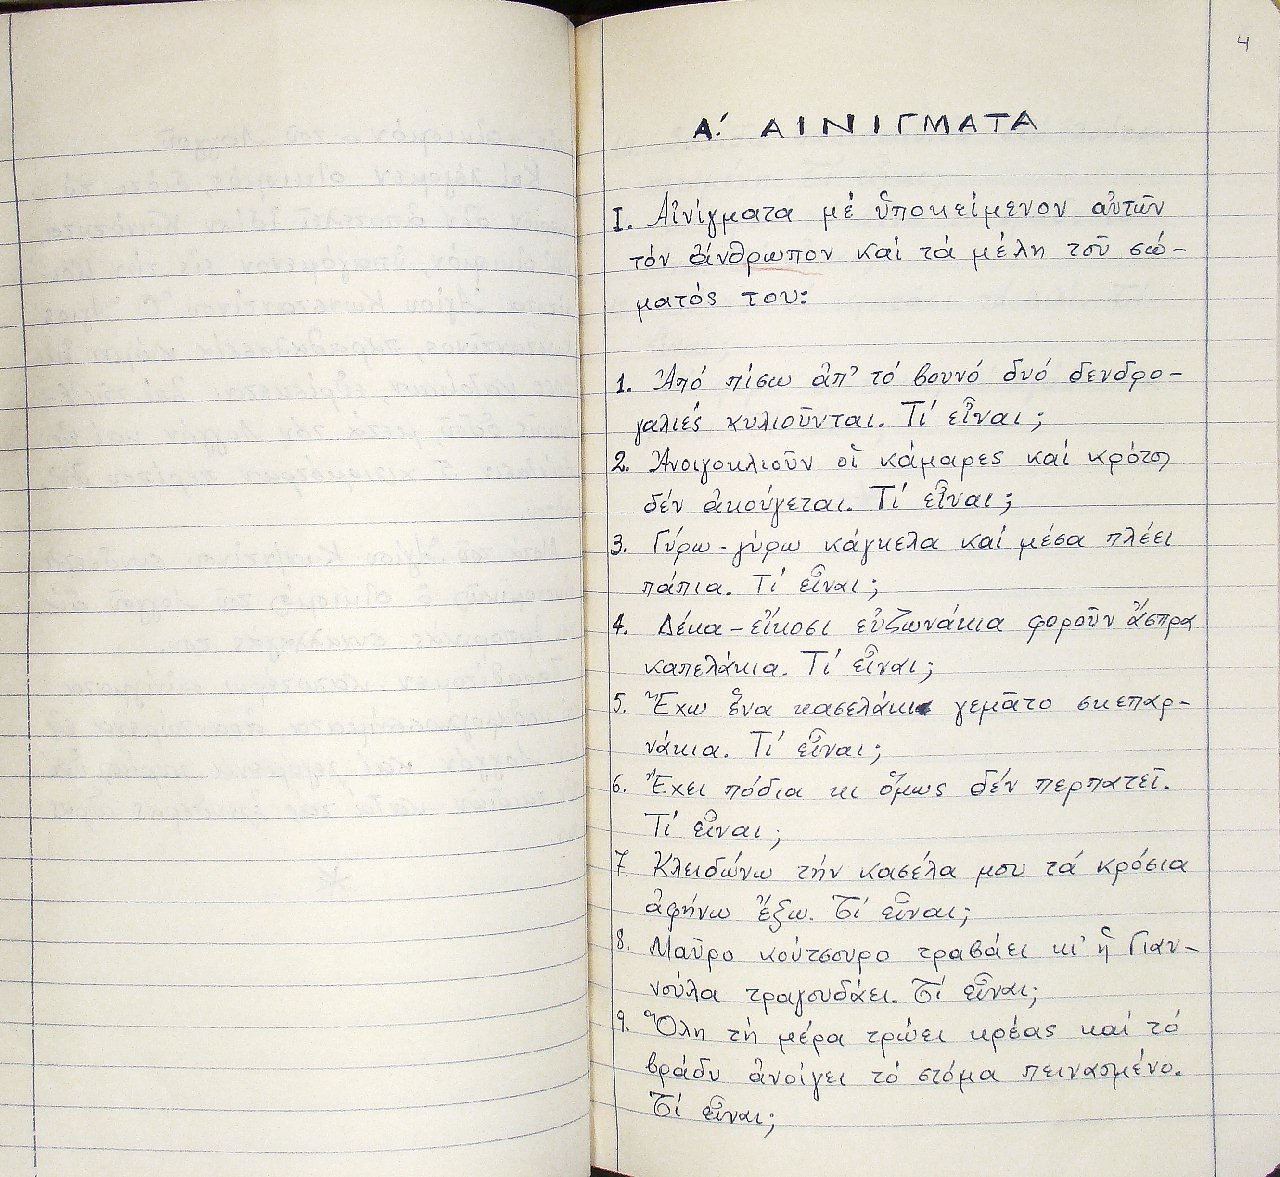 4
Α΄. ΑΙΝΙΓΜΑΤΑ
I. Αἰνίγματα μέ ὑποκείμενον αὐτῶν
τόν ἄνθρωπον καί τά μέλη τοῦ σώ-
ματός του:
1. Ἀπό πίσω ἀπ' τό βουνό δυό δενδρο-
γαλιές κυλιοῦνται. Τί εἶναι;
2. Ἀνοιγοκλιοῦν οἱ κάμαρες καί κρότος
δέν ἀκούγεται. Τί εἶναι;
3. Γύρω-γύρω κάγκελα καί μέσα πλέει
πάπια. Τί εἶναι;
4. Δέκα-εἴκοσι εὐζωνάκια φοροῦν ἄσπρα
καπελάκια. Τί εἶναι;
5. Ἔχω ἕνα κασελάκι γεμᾶτο σκεπαρ-
νάκια. Τί εἶναι;
6. Ἔχει πόδια κι ὅμως δέν περπατεῖ.
Τί εἶναι;
7 Κλειδώνω τήν κασέλα μου τά κρόσια
ἀφήνω ἔξω. Τί εἶναι;
8. Μαῦρο κούτσουρο τραβάει κι' ἡ Γιαν-
νούλα τραγουδάει. Τί εἶναι;
9. Ὅλη τή μέρα τρώει κρέας καί τό
βράδυ ἀνοίγει τό στόμα πεινασμένο.
Τί εἶναι;